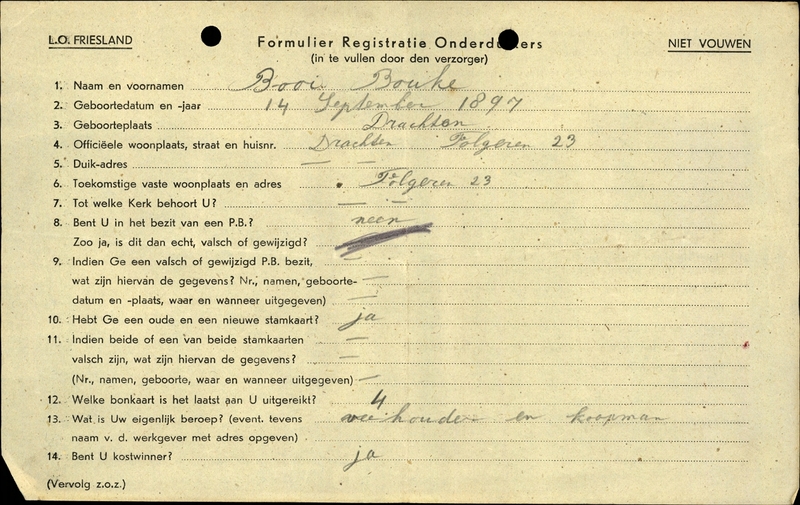 L.O. FRIESLAND
Formulier Registratie Onderduikers
NIET VOUWEN
(in te vullen door den verzorger)
1. Naam en voornamen Booi Bouke
2. Geboortedatum en -jaar 14 September 1897
3. Geboorteplaats Drachten
4. Officiëele woonplaats, straat en huisnr. Drachten Folgeren 23
5. Duik-adres — —
6. Toekomstige vaste woonplaats en adres Folgeren 23
7. Tot welke Kerk behoort U? — —
8. Bent U in het bezit van een P.B.? neen
Zoo ja, is dit dan echt, valsch of gewijzigd?
9. Indien Ge een valsch of gewijzigd P.B. bezit, —
wat zijn hiervan de gegevens? Nr., namen, geboorte- —
datum en -plaats, waar en wanneer uitgegeven) —
10. Hebt Ge een oude en een nieuwe stamkaart? ja
11. Indien beide of een van beide stamkaarten —
valsch zijn, wat zijn hiervan de gegevens? —
(Nr., namen, geboorte, waar en wanneer uitgegeven) —
12. Welke bonkaart is het laatst aan U uitgereikt? 4
13. Wat is Uw eigenlijk beroep? (event. tevens veehouder en koopman
naam v. d. werkgever met adres opgeven)
14. Bent U kostwinner? ja
(Vervolg z.o.z.)